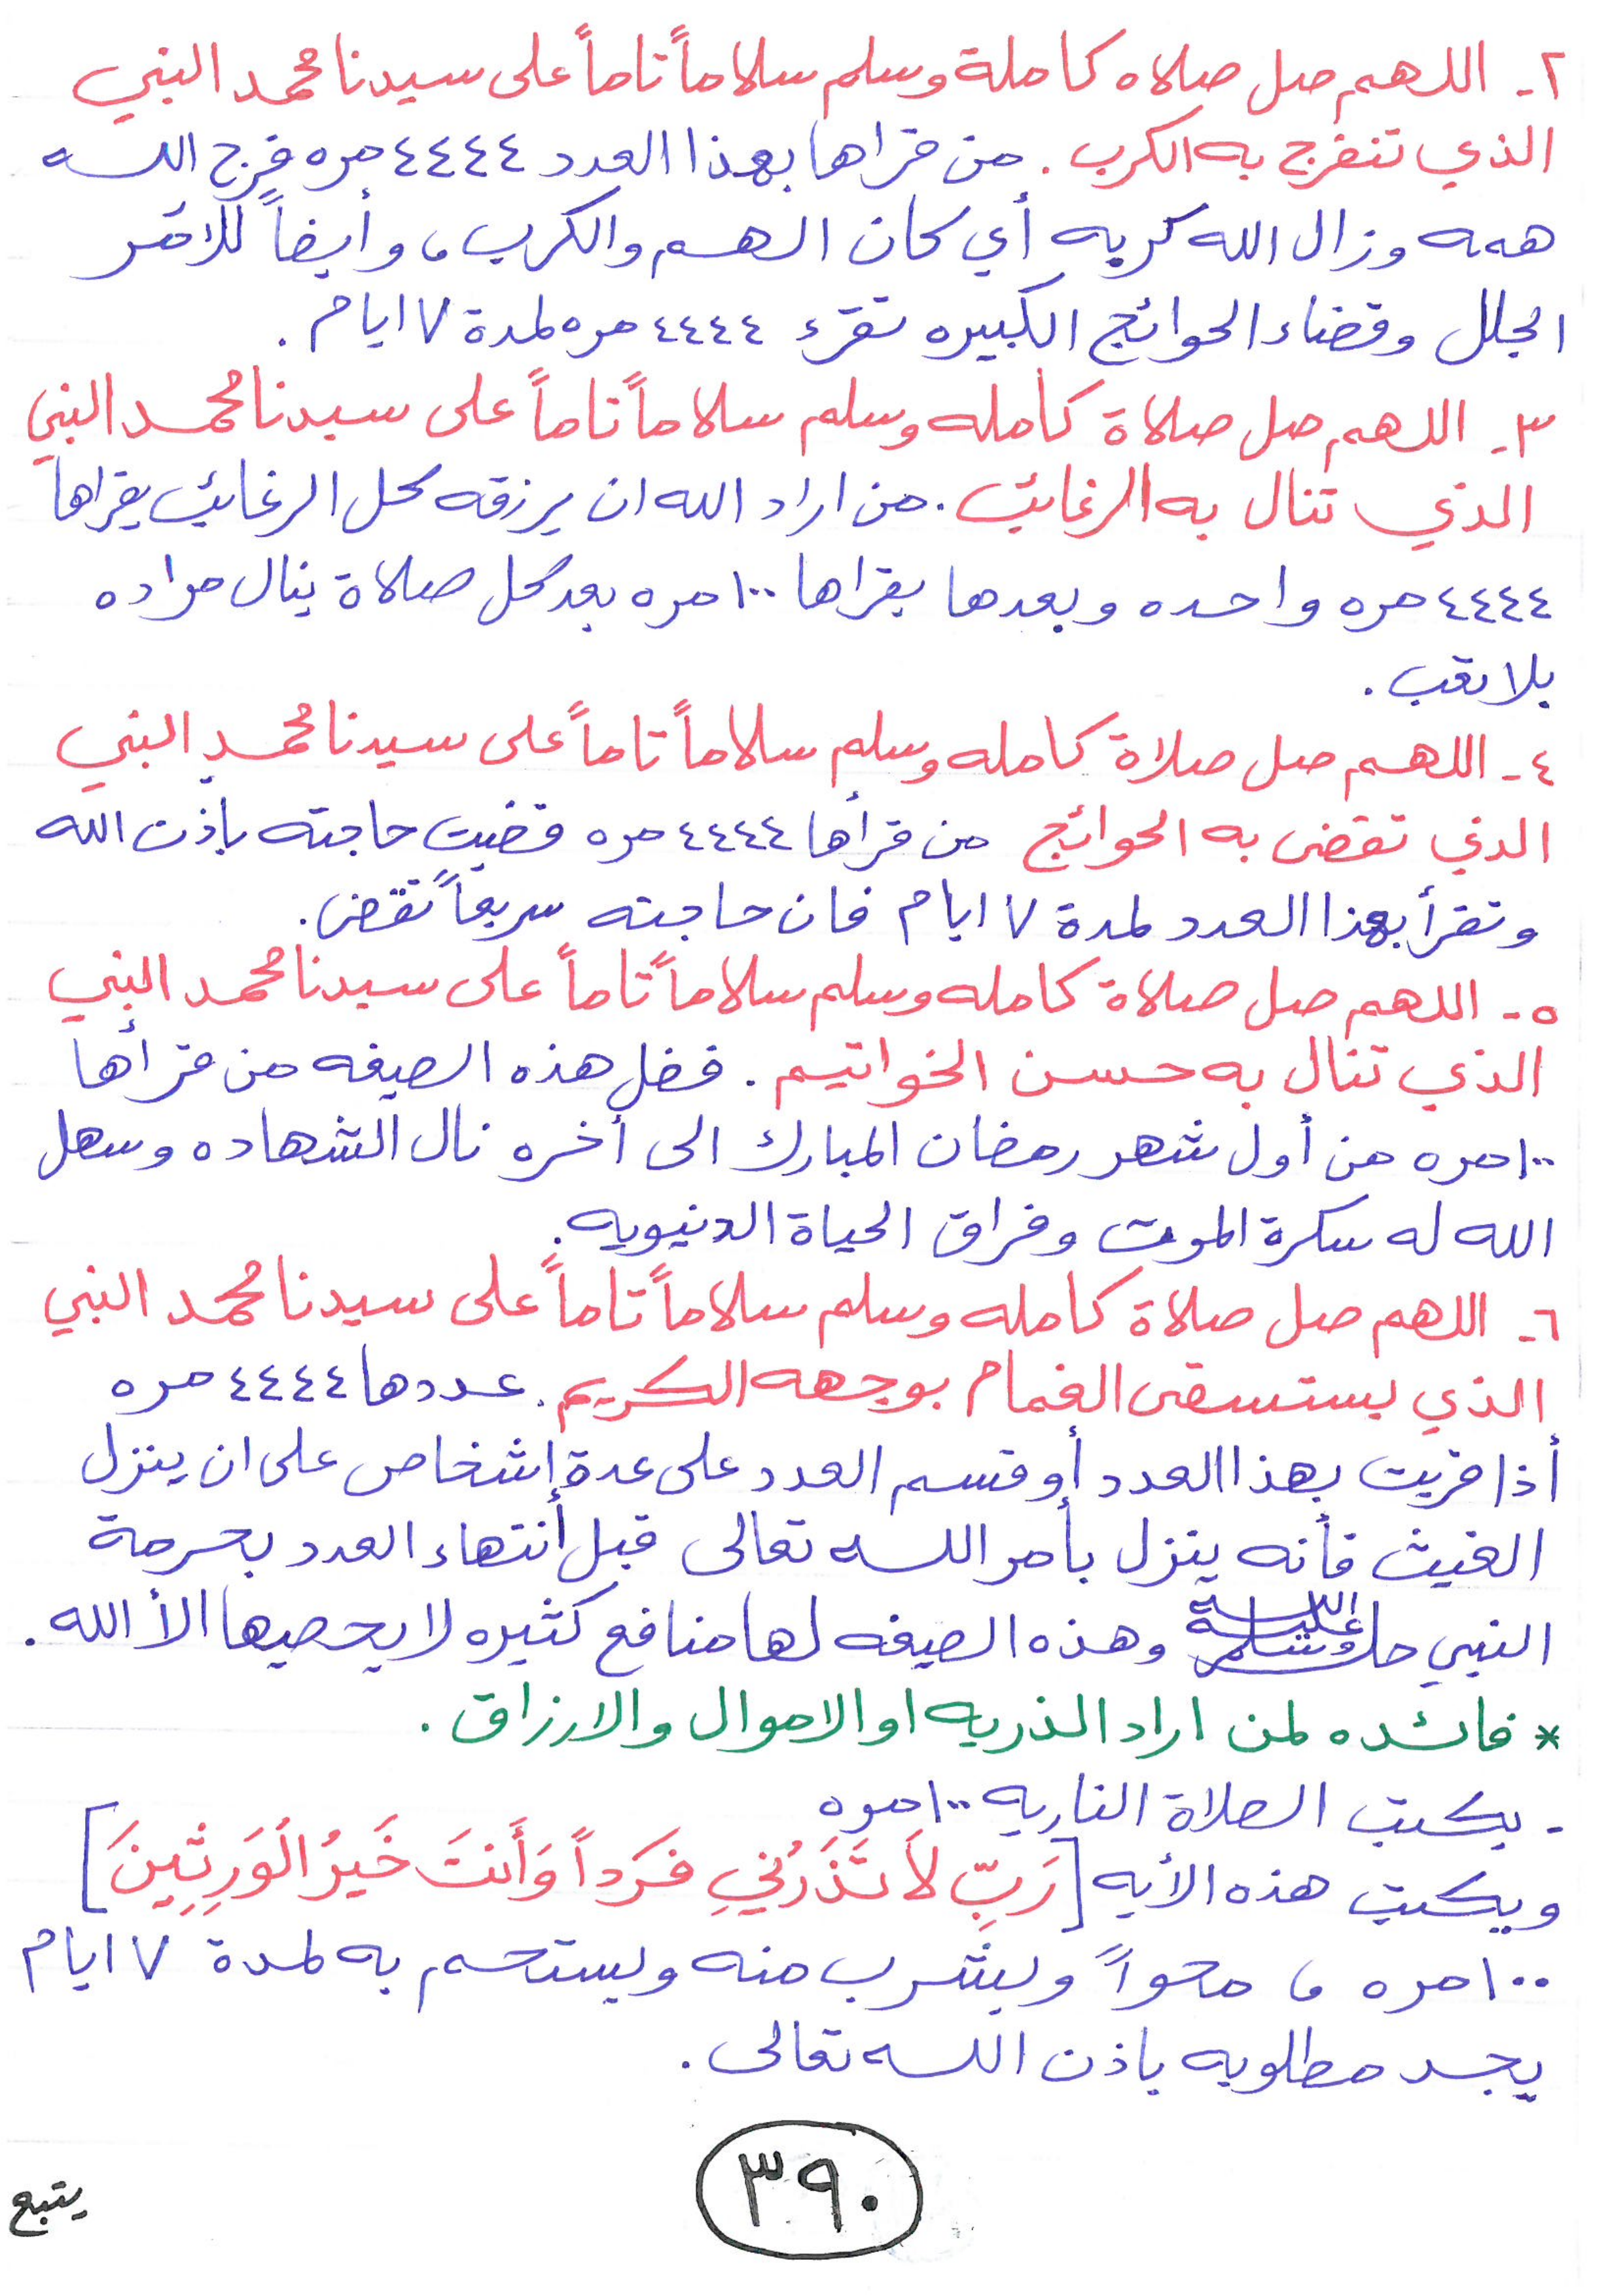 ٢- اللهم صل صلاه كاملة وسلم سلاماً تاماً على سيدنا محمد النبي
الذي تنفرج به الكرب . من قراها بهذا العدد ٤٤٤٤ مره فرج الله
همه وزال الله كربه أي كان الهم والكرب ، وأيضاً للامر
الجلل وقضاء الحوائج الكبيره تقرء ٤٤٤٤ مره لمدة ٧ ايام .
٣- اللهم صل صلاة كامله وسلم سلاماً تاماً على سيدنا محمد النبي
الذي تنال به الرغائب . من اراد الله ان يرزقه كل الرغائب يقراها
٤٤٤٤ مره واحده وبعدها يقراها ١٠٠ مره بعد كل صلاة ينال مراده
بلا تعب .
٤- اللهم صل صلاة كامله وسلم سلاماً تاماً على سيدنا محمد النبي
الذي تقضى به الحوائج من قرأها ٤٤٤٤ مره قضيت حاجته باذن الله
وتقرأ بهذا العدد لمدة ٧ ايام فان حاجته سريعاً تقضى .
٥- اللهم صل صلاة كامله وسلم سلاماً تاماً على سيدنا محمد النبي
الذي تنال به حسن الخواتيم . فضل هذه الصيغه من قرأها
١٠٠ مره من أول شهر رمضان المبارك الى أخره نال الشهاده وسهل
الله له سكرة الموت وفراق الحياة الدنيويه .
٦- اللهم صل صلاة كامله وسلم سلاماً تاماً على سيدنا محمد النبي
الذي يستسقى الغمام بوجهه الكريم . عددها ٤٤٤٤ مره
أذا قريت بهذا العدد أو قسم العدد على عدة إشخاص على ان ينزل
الغيث فأنه ينزل بأمر الله تعالى قبل أنتهاء العدد بحرمة
النبي صلى الله عليه وسلم وهذه الصيغه لها منافع كثيره لا يحصيها الأ الله .
* فائده لمن اراد الذريه او الاموال والارزاق .
- يكتب الصلاة الناريه ١٠٠ مره
ويكتب هذه الأيه [رَبِّ لاَ تَذَرْنِي فَرَداً وَأَنتَ خَيرُ الْوَرِثِينَ]
١٠٠ مره ، محواً ويشرب منه ويستحم به لمدة ٧ ايام
يجد مطلوبه باذن الله تعالى .
٣٩٠
يتبع